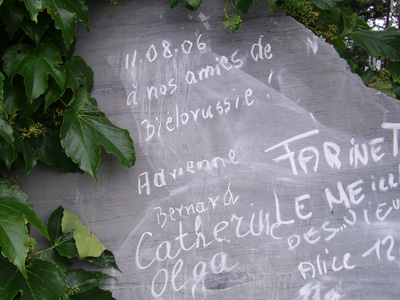 11.08.06
à nos amies de
Bielorussie !
Adrienne
Bernard
Catherine
Olga
FARINET
LE MEill
DES... VIEU
Alice 12